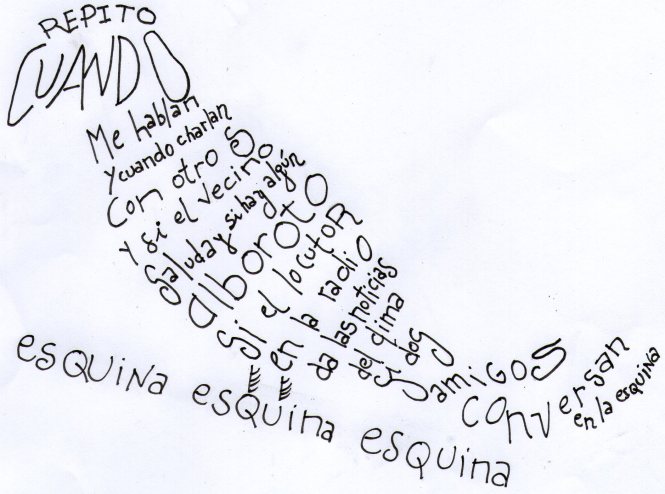 REPITO
CUANDO
Me hablan
y cuando charlan
con otroS
y si el vecino
Saluda y si hay algún
alboroto
Si el locutoR
en la radiO
da las noticias
del clima
Si dos
amiGOS
conversan
en la esquina
esQUiNa esQUina esQUina